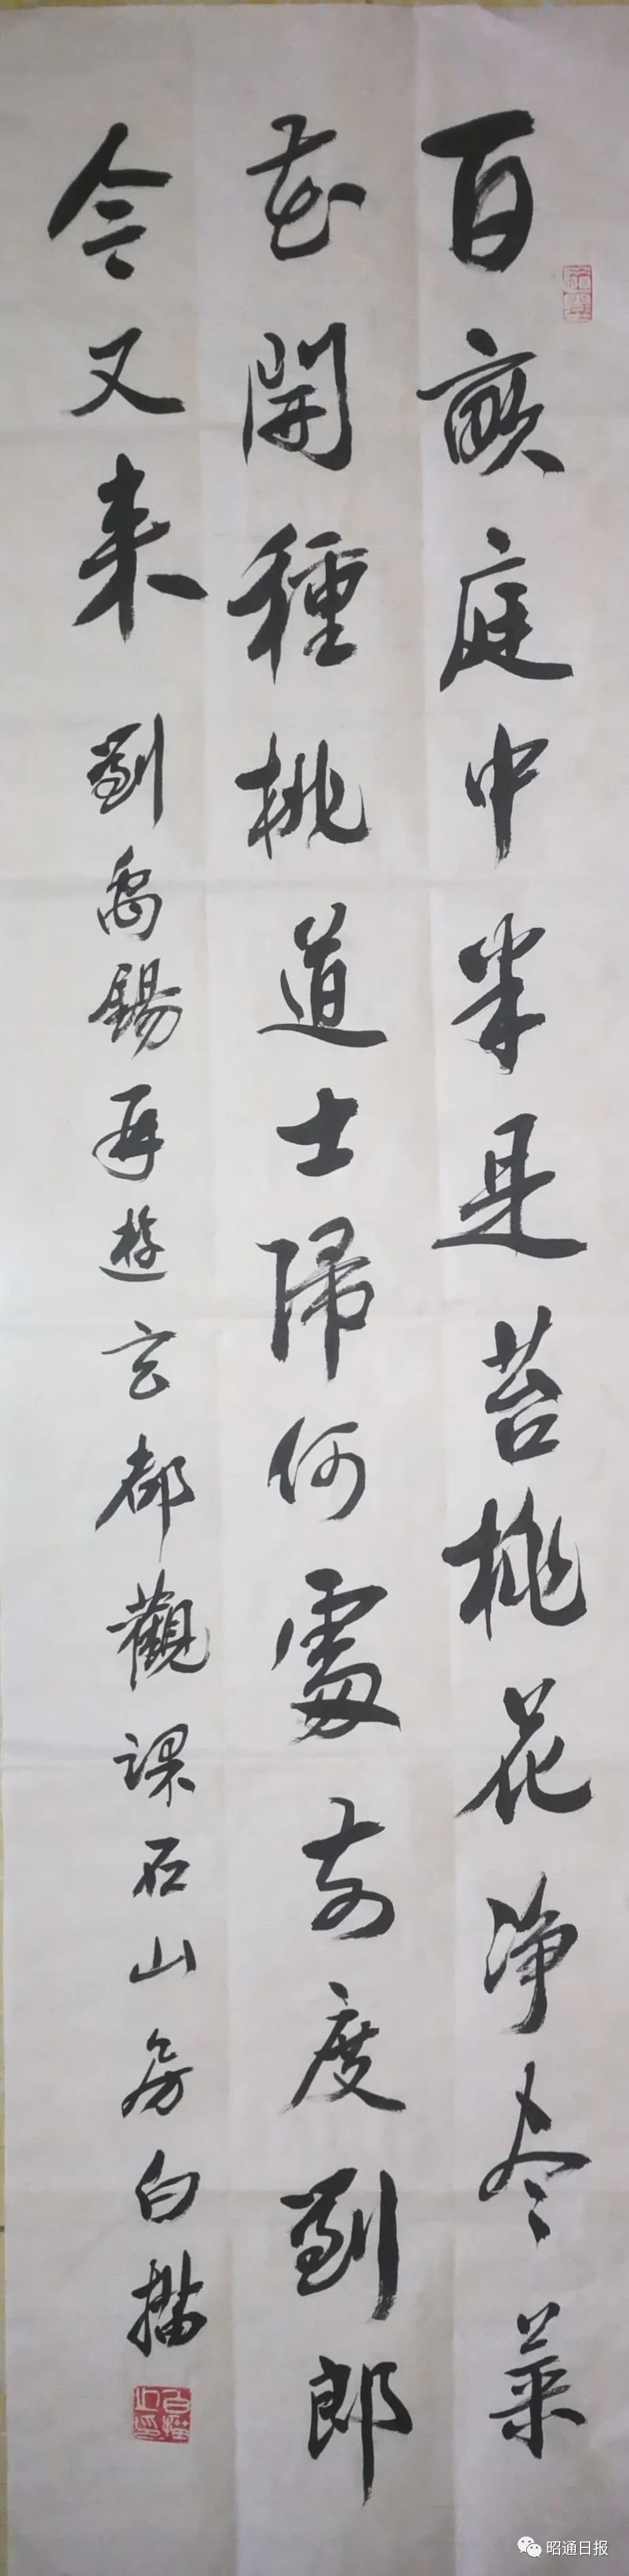 百畝庭中半是苔桃花淨盡菜
花開種桃道士歸何處前度劉郎
今又来 劉禹錫再遊玄都觀課石山房白描
昭通日报